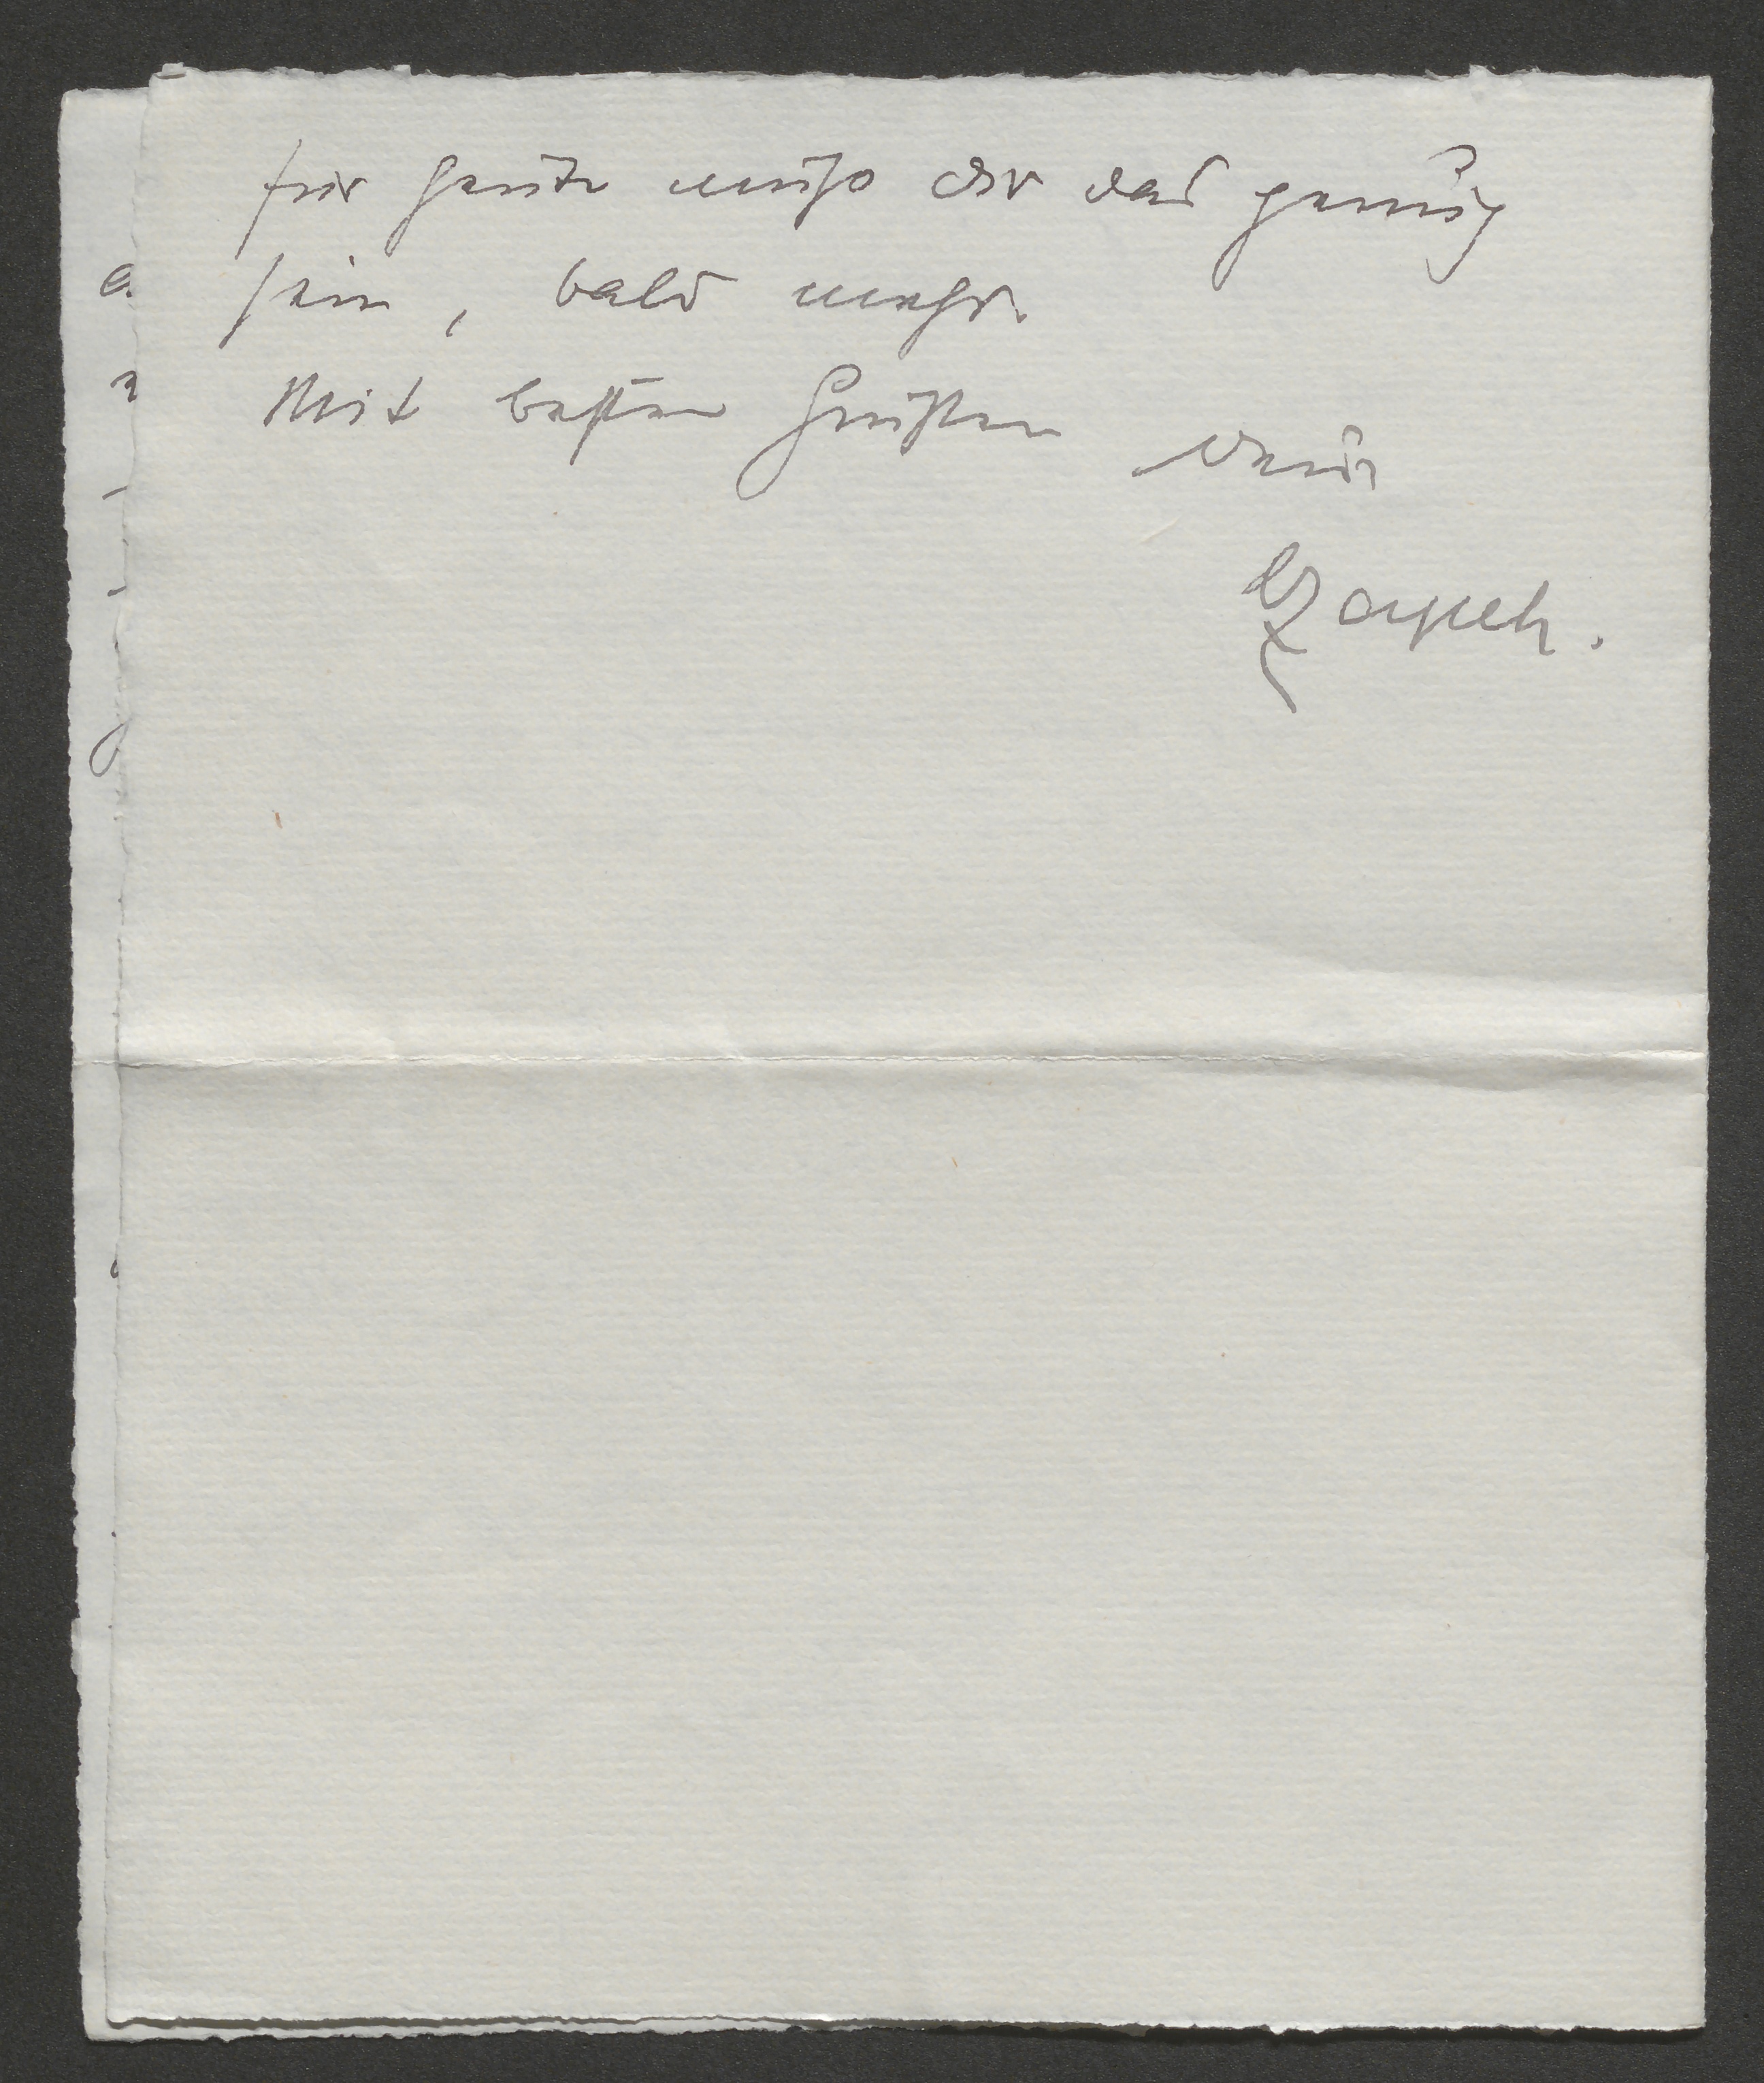 für heute muß dir das genug
sein, bald mehr.
Mit besten Grüßen
Dein